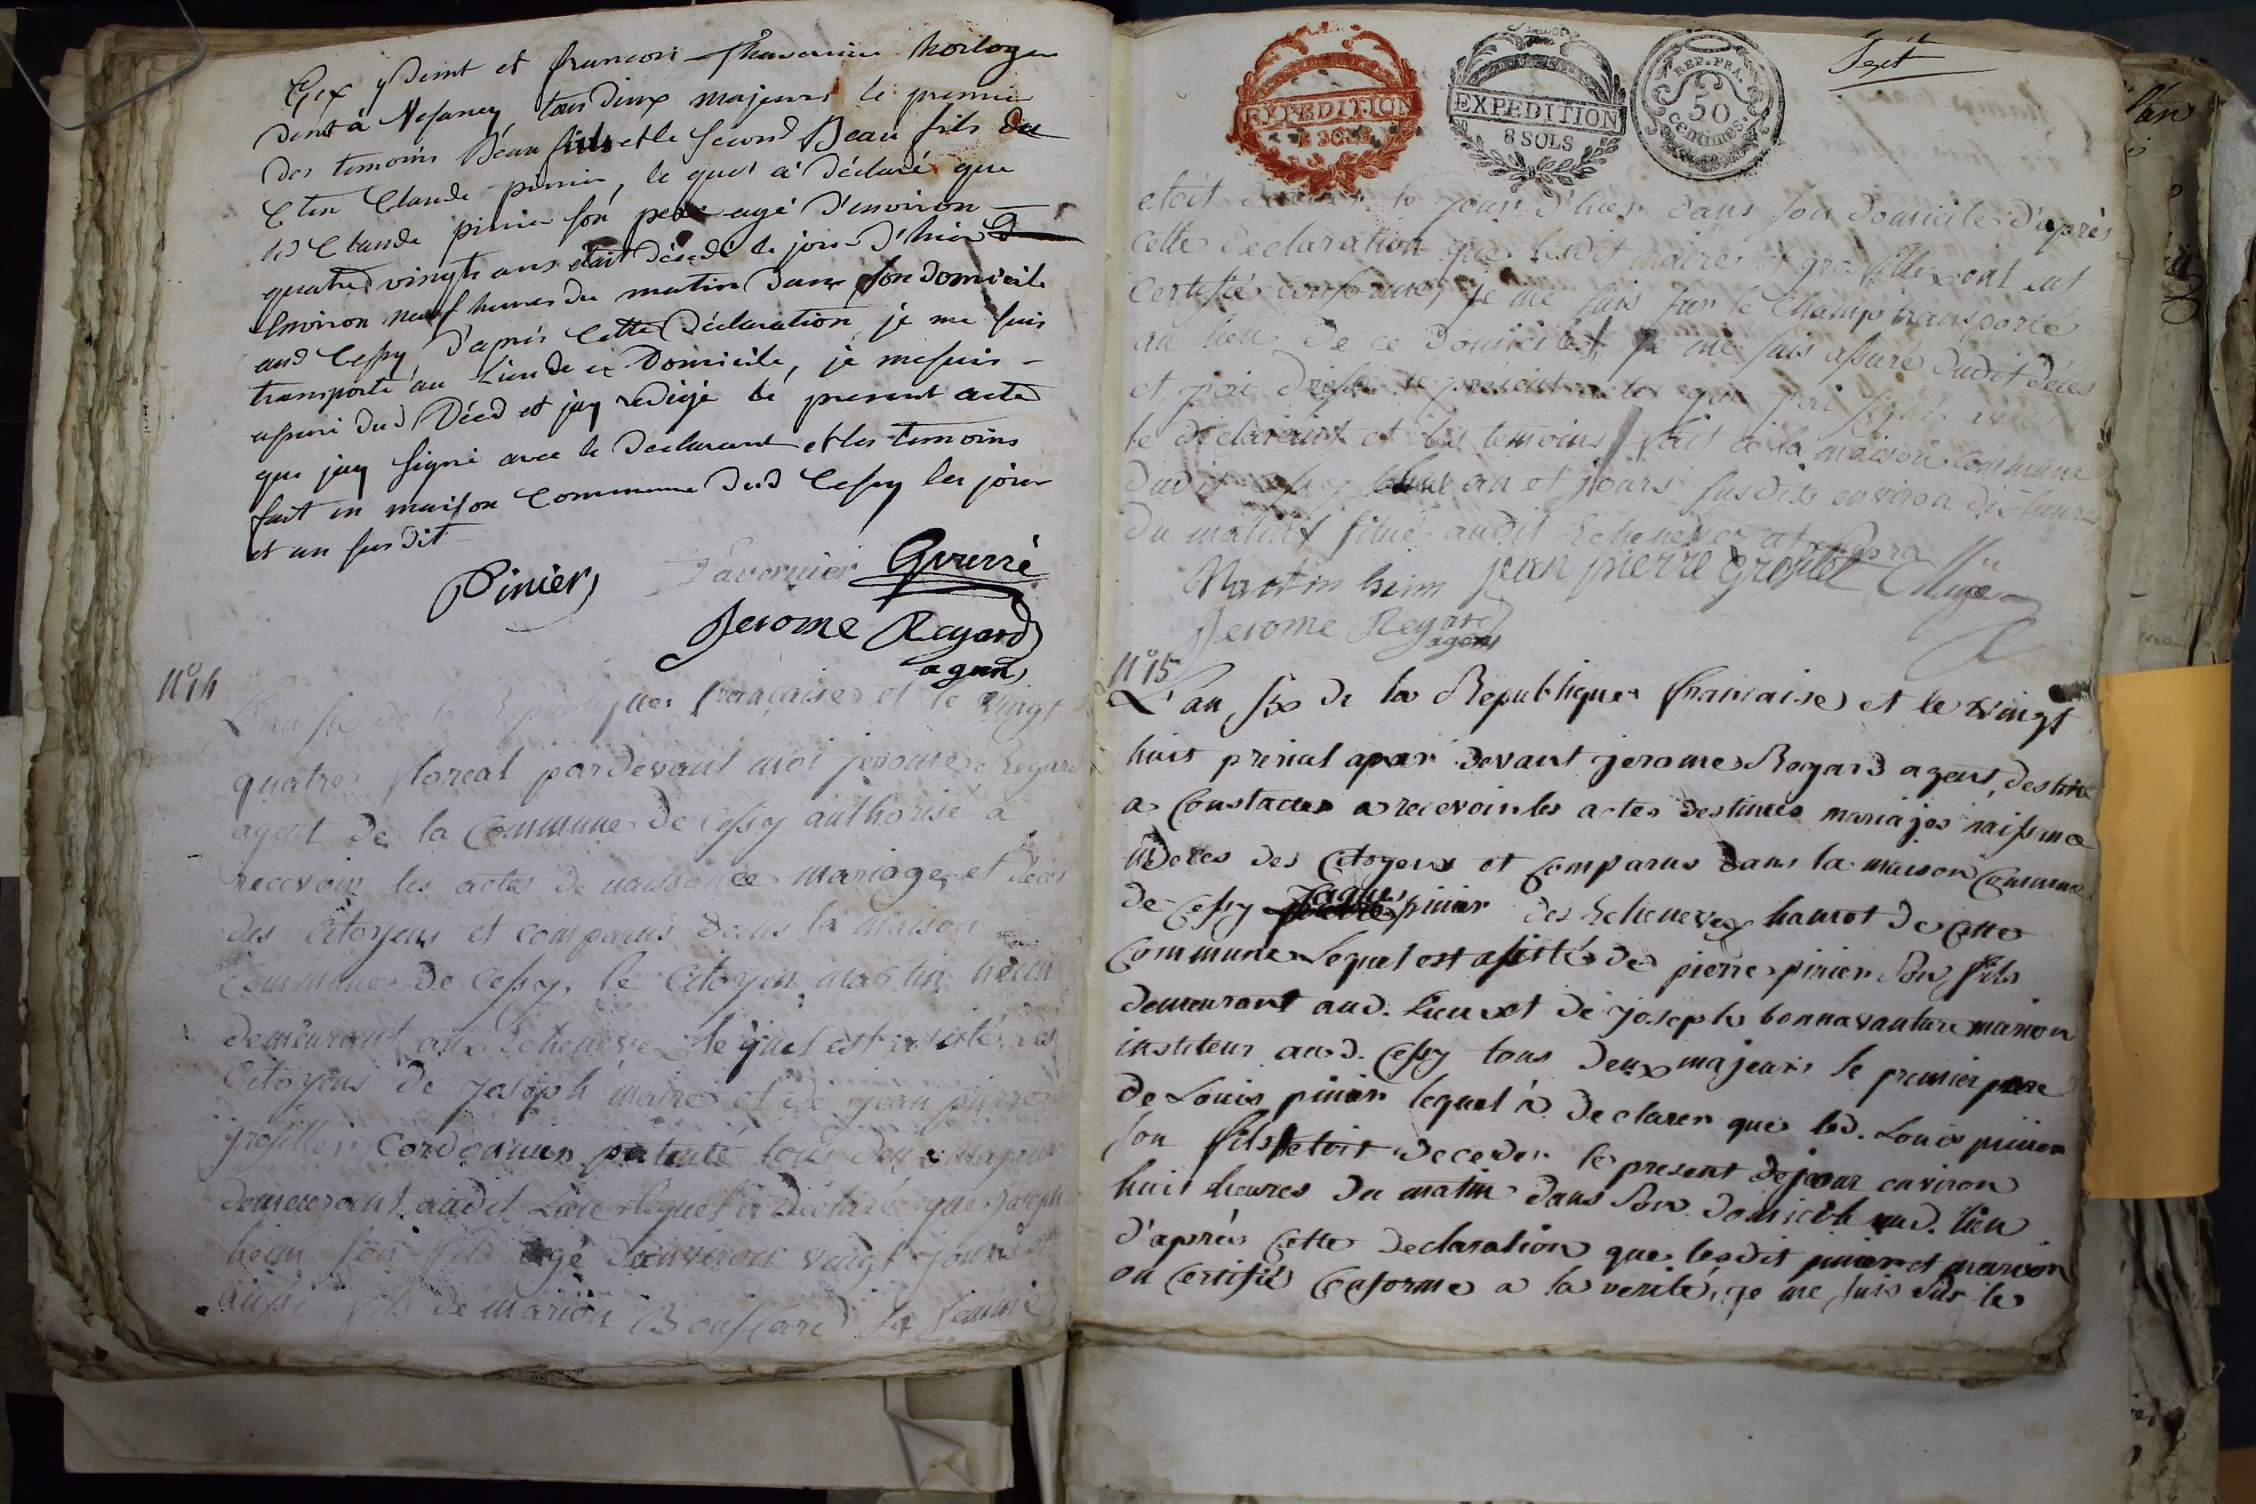 Gex y demt et francois Thavernier horloger
demt à Vesancy, tous deux majeurs le premier
des temoins Beau fils et le second Beau fils du
Cten Claude pinier, le quel à déclaré que
led Claude pinier son pere agé d'environ
quatre vingts ans etait décedé le jour d'hier
Environ neuf heures du matin dans son domicile
aud Cessy d'après Cette déclaration je me suis
transporté au Lieu de ce Domicile, je me suis
assuré dud Décd et jay redigé le present acte
que jay signé avec le Declarant et les temoins
fait en maison Commune dud Cessy les jour
et an susdit
Pinier Tavernier Gourré
Jerome Regard
agent
N° 14
L'an six de la Republique française et le vingt
quatre floreal pardevant moi jerome Regard
agent de la Commune de Cessy authorisé a
recevoir les actes de naissance mariage et déces
des Citoyens et comparus dans la maison
Commune de Cessy, le Citoyen martin heim
demeurant aux Echenevex lequel est assisté des
Citoyens de Joseph maire et de jean pierre
grosfiller Cordonnier patenté tous deux majeurs
demeurant audit Lieu lequel a déclaré que joseph
heim son fils agé d'environ vingt jours et
aussi fils de marion Bouffard sa femme
EXPEDITION
8 SOLS
EXPEDITION
8 SOLS
REP. FRA.
50
centimes.
Sept
etoit decedé le jour d'hier dans son domicile d'après
cette declaration que lesdit maire et grosfiller ont
certifié conforme, je me suis sur le champ transporté
au lieu de ce domicile, je me suis assuré dudit déces
et j'ai dressé le présent acte que j'ai signé avec
le déclarant et les temoins fait a la maison commune
dudit Cessy les an et jours susdits environ dix heures
du matin situé audit Echenevex
Martin heim jean pierre Grosfilet Maire
Jerome Regard
agent
N° 15
L'an six de la Republique francaise et le vingt
huit prerial apar devant jerome Regard agent, destiné
a Constater a recevoir les actes destinés mariajes naissance
deces des Citoyens et comparus dans la maison Commune
de Cessy Jaques pinier des Echenevex hamot de cette
Commune Lequel est assisté de pierre pinier Son fils
demeurant aud. Lieu et de joseph bonnavanture marion
instituteur aud. Cessy tous deux majeurs le premier pere
de Louis pinier lequel à declarer que led. Louis pinier
son fils etoit deceder le present jour environ
huit heures du matin dans Son domicile aud. lieu
d'après Cette declaration que lesdit pinier et marion
on certifié Conforme a la verité, je me suis Sur le